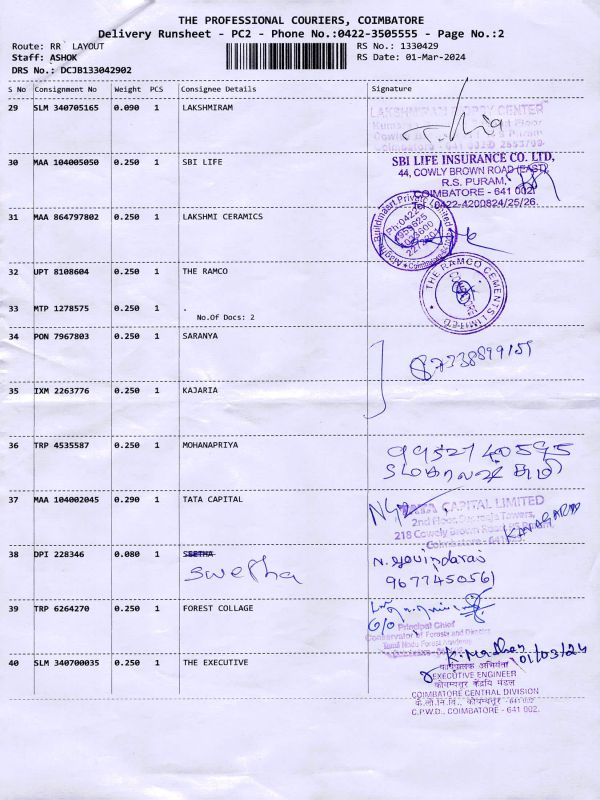 THE PROFESSIONAL COURIERS, COIMBATORE
Delivery Runsheet - PC2 - Phone No.:0422-3505555 - Page No.:2
Route: RR LAYOUT
RS No.: 1330429
Staff: ASHOK
RS Date: 01-Mar-2024
DRS No.: DCJB133042902
S No Consignment No Weight PCS Consignee Details Signature
29 SLM 340705165 0.090 1 LAKSHMIRAM
30 MAA 104005050 0.250 1 SBI LIFE
SBI LIFE INSURANCE CO. LTD,
44, COWLY BROWN ROAD (EAST),
R.S. PURAM,
COIMBATORE - 641 002.
Tel: 0422-4200824/25/26.
31 MAA 864797802 0.250 1 LAKSHMI CERAMICS
32 UPT 8108604 0.250 1 THE RAMCO
THE RAMCO CEMENTS LIMITED
33 MTP 1278575 0.250 1 .
No.Of Docs: 2
34 PON 7967803 0.250 1 SARANYA
35 IXM 2263776 0.250 1 KAJARIA
36 TRP 4535587 0.250 1 MOHANAPRIYA
9952740595
37 MAA 104002045 0.290 1 TATA CAPITAL
TATA CAPITAL LIMITED
2nd Floor,
218 Cowly Brown Road
Coimbatore - 641
KANAGARAJ
38 DPI 228346 0.080 1 SEETHA
Swetha
9677450561
39 TRP 6264270 0.250 1 FOREST COLLAGE
Principal Chief
Conservator of Forests and Director
Tamil Nadu Forest Academy
40 SLM 340700035 0.250 1 THE EXECUTIVE
01/03/24
कार्यपालक अभियंता
EXECUTIVE ENGINEER
कोयम्बत्तूर केंद्रीय मंडल
COIMBATORE CENTRAL DIVISION
के.लो.नि.वि., कोयम्बत्तूर - 641 002
C.P.W.D., COIMBATORE - 641 002.